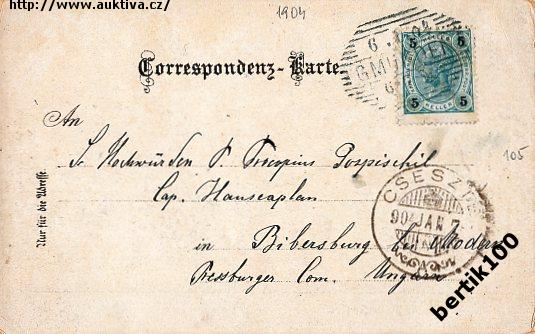 http://www.auktiva.cz/
1904
Correspondenz-Karte
6
GMUNDEN
5 5
HELLER
5 5
An
Sr Hochwürden P. Procopius Pospischil
105
Cap. Hauscaplan
CSESZ
904 JAN 7
Nur für die Adresse.
in Bibersburg bei Modern
Pressburger Com. Ungarn
bertik100